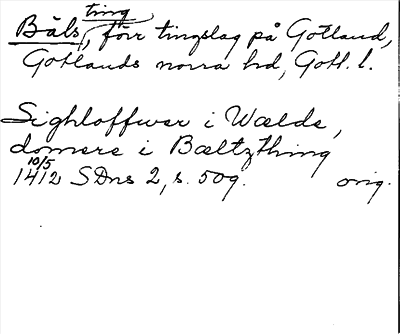 Bäls ting, förr tingslag på Gotland,
Gotlands norra hd, Gotl. l.
Sighloffwer i Wælde,
domere i Bæltzthing
10/5
1412 SDns 2, s. 509. orig.